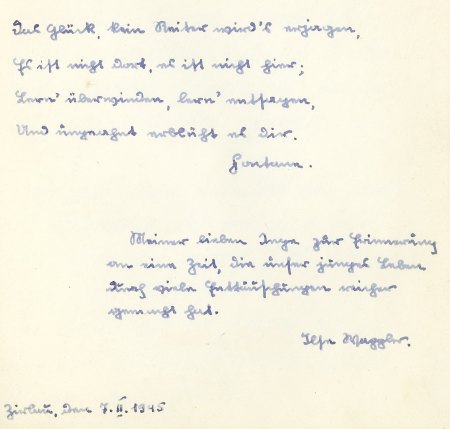 Das Glück, kein Reiter wird's erjagen,
Es ist nicht dort, es ist nicht hier;
Lern' überwinden, lern' entsagen,
Und ungeahnt erblüht es dir.
Fontane.
Meiner lieben Inge zur Erinnerung
an eine Zeit, die unser junges Leben
durch viele Enttäuschungen reicher
gemacht hat.
Ilse Wappler.
Zirlau, den 7. II. 1945